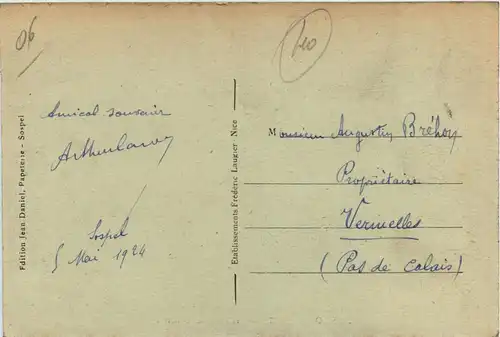 06
40
Amical souvenir
Sospel
5 Mai 1924
Monsieur Augustin Bréhon
Propriétaire
Vermelles
(Pas de Calais)
Edition Jean Daniel, Papeterie - Sospel
Etablissements Frédéric Laugier Nice